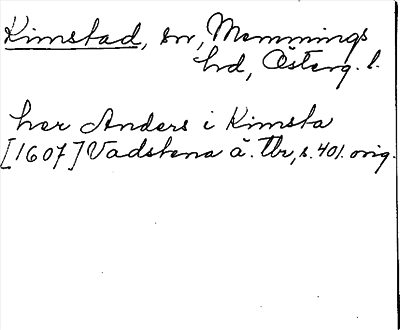 Kimstad, sn, Memmings
hd, Österg. l.
her Anders i Kimsta
[1607] Vadstena ä. Tbr, s. 401. orig.